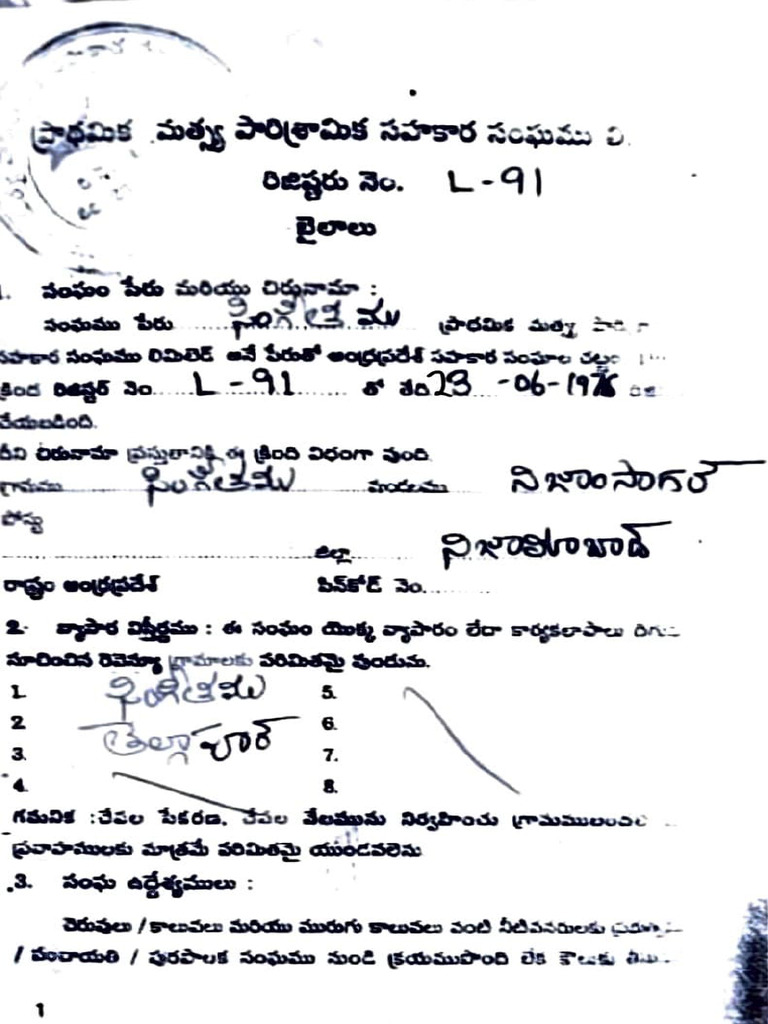 ప్రాథమిక మత్స్య పారిశ్రామిక సహకార సంఘము లి.
రిజిష్టరు నెం. L-91
బైలాలు
1. సంఘం పేరు మరియు చిరునామా :
సంఘము పేరు సింగీతము ప్రాథమిక మత్స్య
సహకార సంఘము లిమిటెడ్ అనే పేరుతో ఆంధ్రప్రదేశ్ సహకార సంఘాల చట్టం
క్రింద రిజిష్టర్ నెం. L-91 తో తేది 23-06-1976
చేయబడింది.
దీని చిరునామా ప్రస్తుతానికి ఈ క్రింది విధంగా వుంది.
గ్రామము సింగీతము మండలము నిజాంసాగర్
పోస్టు
జిల్లా నిజామాబాద్
రాష్ట్రం ఆంధ్రప్రదేశ్ పిన్‌కోడ్ నెం.
2. వ్యాపార విస్తీర్ణము : ఈ సంఘం యొక్క వ్యాపారం లేదా కార్యకలాపాలు దిగువ
సూచించిన రెవెన్యూ గ్రామాలకు పరిమితమై వుండును.
1. సింగీతము 5.
2. తెల్గాపూర్ 6.
3. 7.
4. 8.
గమనిక : చేపల సేకరణ, చేపల వేలమును నిర్వహించు గ్రామములందలి
ప్రవాహములకు మాత్రమే పరిమితమై యుండవలెను
3. సంఘ ఉద్దేశ్యములు :
చెరువులు / కాలువలు మరియు మురుగు కాలువలు వంటి నీటివనరులకు
/ పంచాయతి / పురపాలక సంఘము నుండి క్రయముపొంది లేక కౌలుకు
1